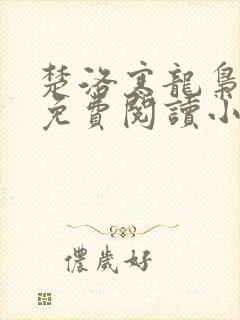 楚洛寒龍梟
免費閱讀小
儂歲好